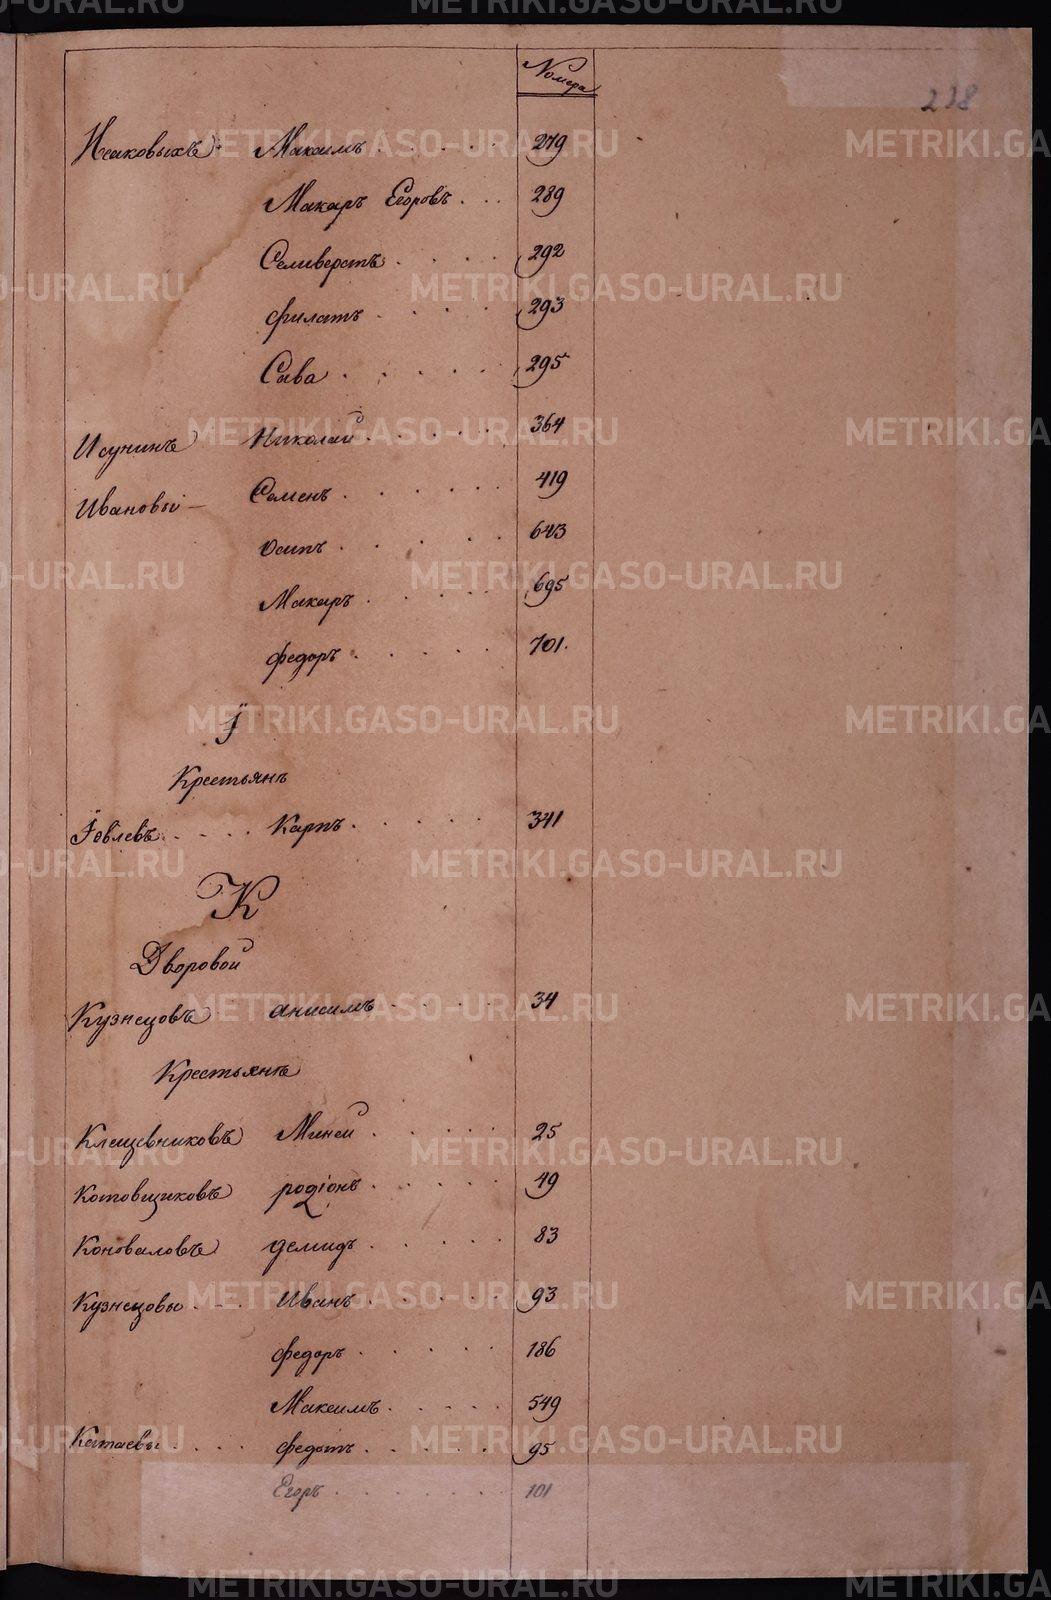 Номера
238
Исаковыхъ Максимъ . . . . . 279
Макаръ Егоровъ . . . 289
Селиверстъ . . . . 292
филатъ . . . . . 293
Сава . . . . . 295
Исунинъ Николай . . . . . 364
Ивановы — Семенъ . . . . . 419
Осипъ . . . . . 643
Макаръ . . . . . 695
федоръ . . . . . 701.
Ї
Крестьянъ
Їевлевъ . . . . Карпъ . . . . . 341
К
Дворовой
Кузнецовъ анисимъ . . . . 34
Крестьянъ
Клещевниковъ Миней . . . . . 25
Котовщиковъ родіонъ . . . . . 49
Коноваловъ демидъ . . . . . 83
Кузнецовы . . . Иванъ . . . . . 93
федоръ . . . . . 186
Максимъ . . . . . 549
Катаевы . . . . федотъ . . . . . 95
Егоръ . . . . . . . 101
METRIKI.GASO-URAL.RU